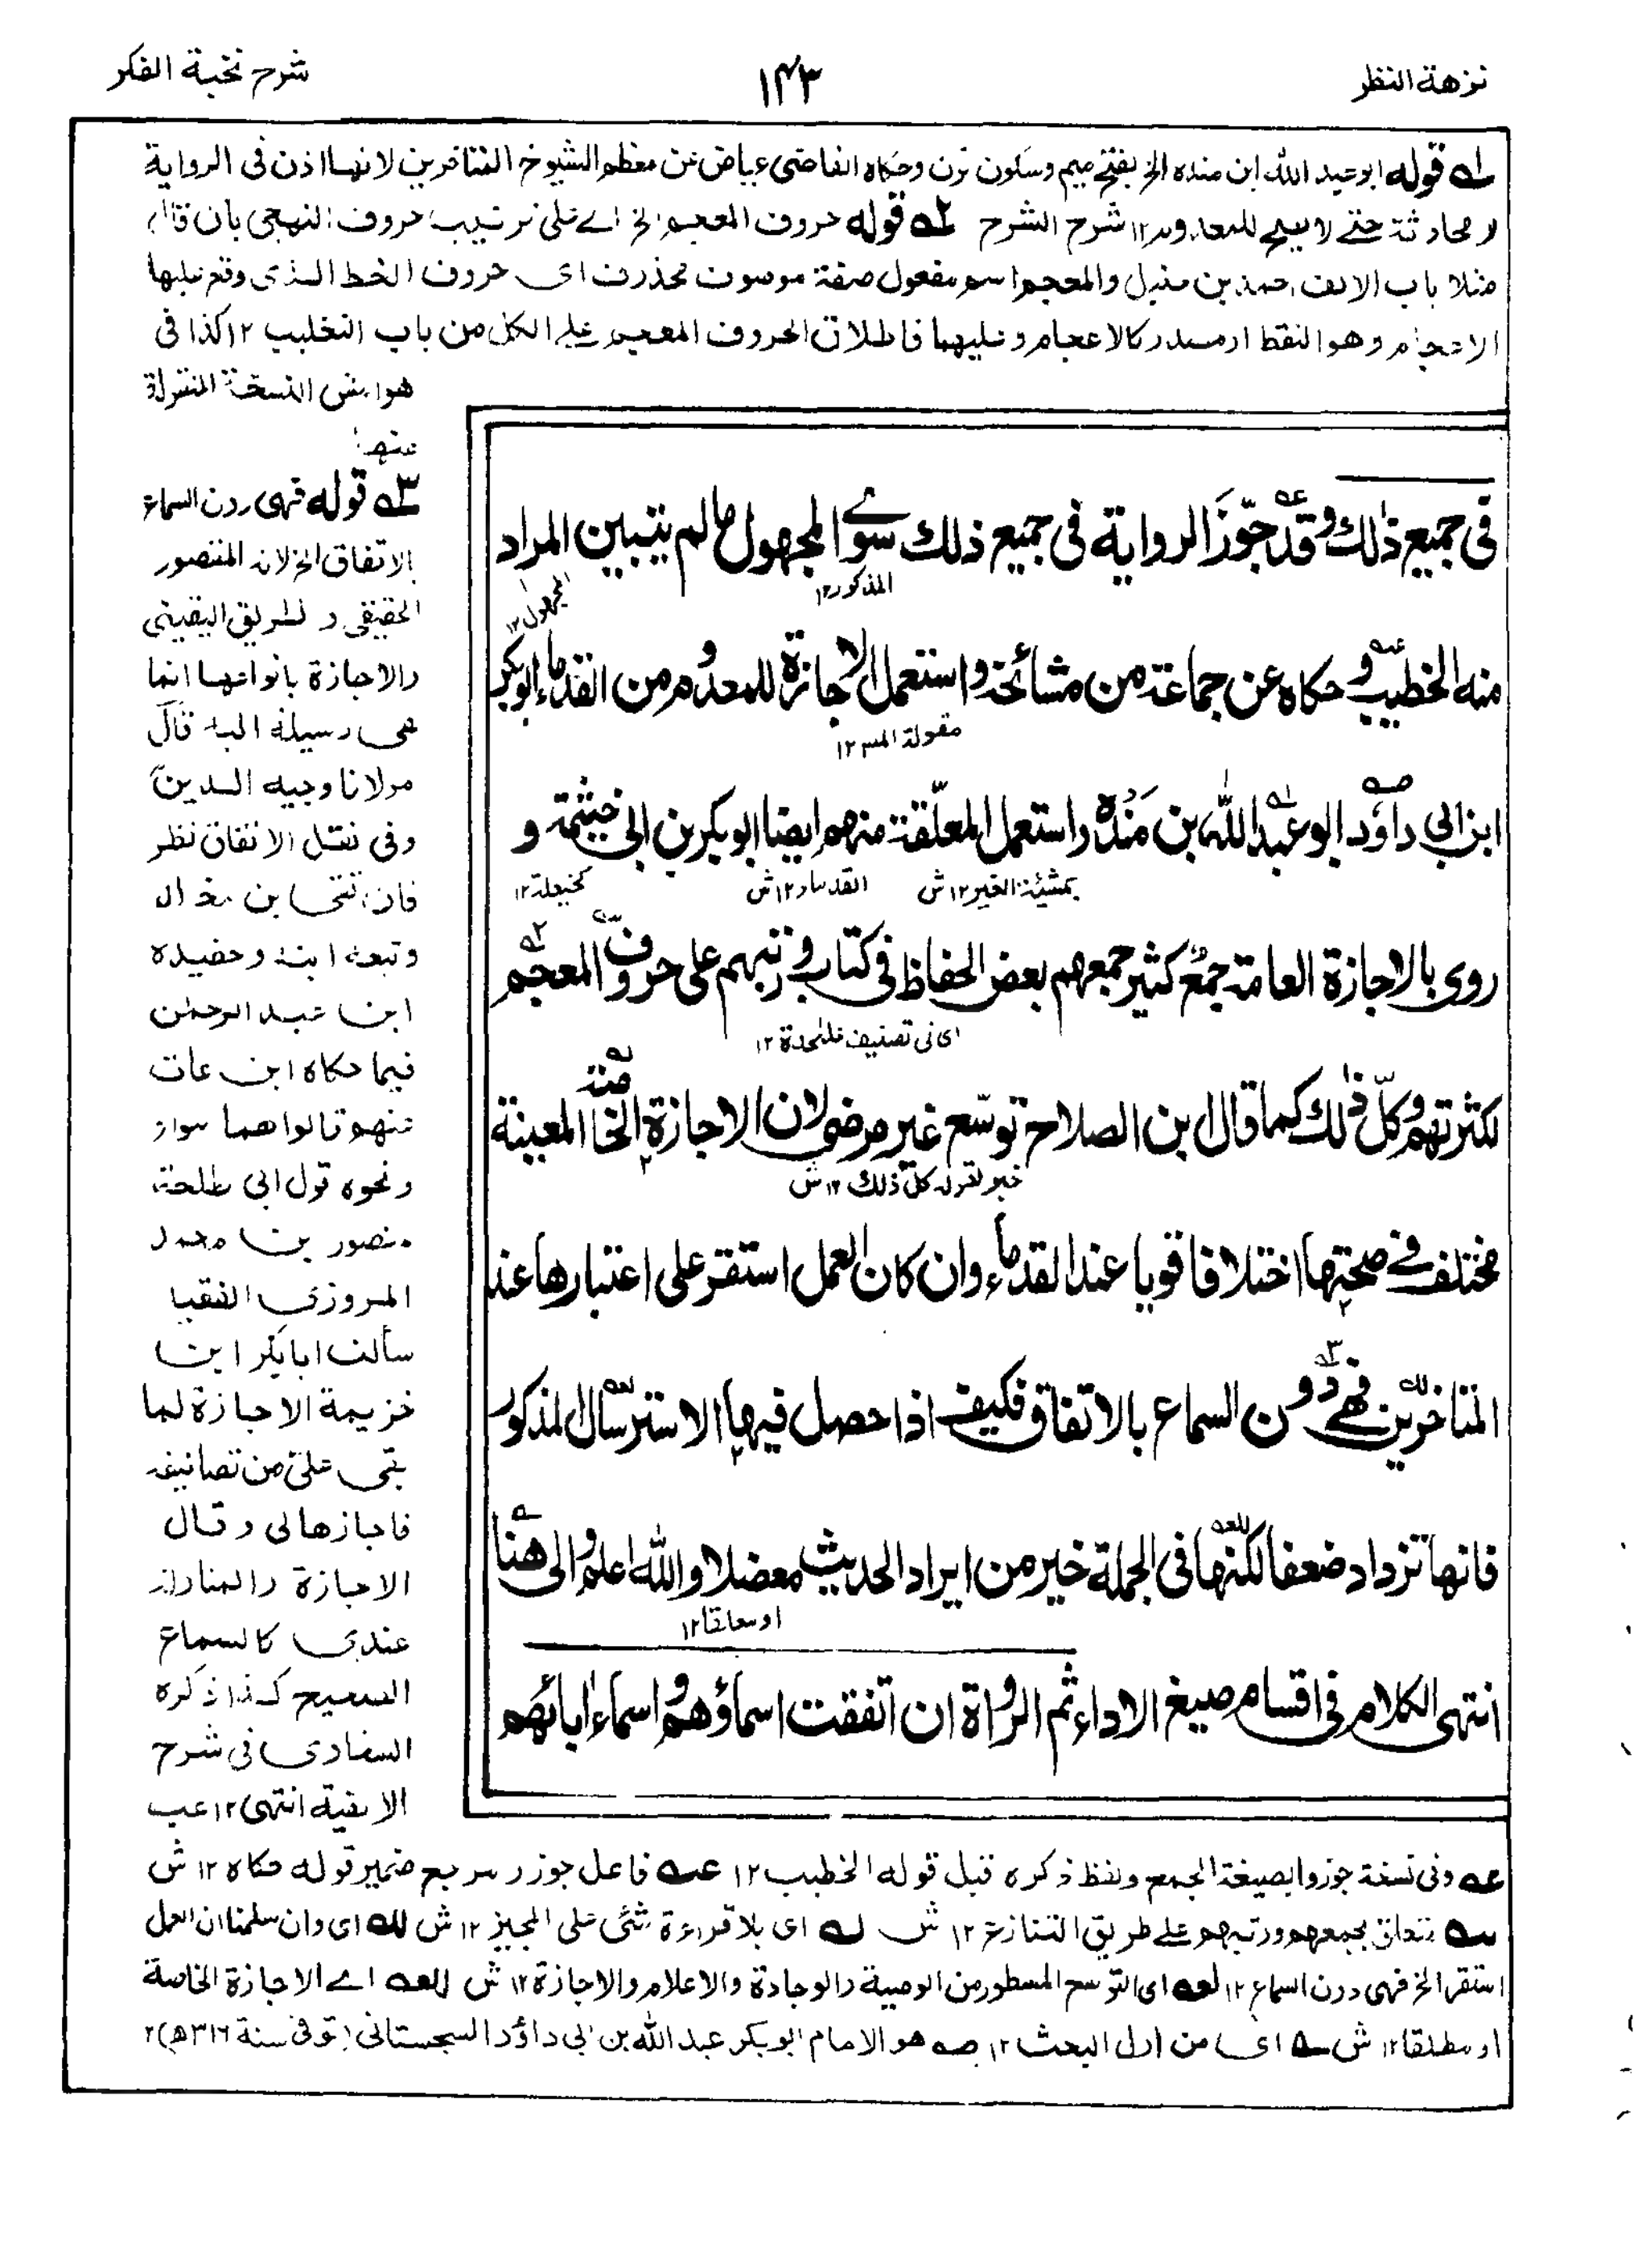 نزهة النظر
١٤٣
شرح نخبة الفكر
١ه قوله ابوعبد الله ابن منده الخ بفتح ميم وسكون نون وحكاه القاضى عياض عن معظم الشيوخ المتاخرين لانها اذن فى الرواية
لا محادثة حتے لا يصح للمعدوم ١٢ شرح الشرح ٢ه قوله حروف المعجم الخ اے على ترتيب حروف التهجى بان قال
مثلا باب الالف احمد بن حنبل والمعجم اسم مفعول صفة موصوف محذوف اى حروف الخط الذى وقع عليها
الاعجام وهو النقط او مصدر كالاعجام وعليهما فاطلاق الحروف المعجم علے الكل من باب التغليب ١٢ كذا فى
هوامش النسخة المنقولة
عنها
٣ه قوله فهى دون السماع
بالاتفاق الخ لانه المقصور
الحقيقى و الطريق اليقينى
والاجازة بانواعها انما
هى وسيلة اليه قال
مولانا وجيه الدين
وفى نقل الاتفاق نظر
فان
وتبعه ابنه وحفيده
ابن عبد الرحمٰن
فيما حكاه ابن عات
عنهم قالوا هما سواء
ونحوه قول ابى طلحة
منصور بن محمد
المروزى الفقيه
سألت ابابكر ابن
خزيمة الاجازة لما
بقى علىّ من تصانيفه
فاجازها لى و قال
الاجازة والمناولة
عندى كالسماع
الصحيح كذا ذكره
السخاوى فى شرح
الالفية انتهى ١٢ عب
فى جميع ذٰلك وقد جوّز الرواية فى جميع ذلك سوے المجهول ما لم يتبين المراد
المذكور ١٢
المجهول ١٢
منه الخطيب وحكاه عن جماعة من مشائخه واستعمل الاجازة للمعدوم من القدماء ابوبكر
مقولة المص ١٢
ابن ابى داؤد ابو عبد الله بن مَنْدَه واستعمل المعلّقة منهم ايضا ابوبكر بن ابى خيثمة و
بمشيئة الغير ١٢ ش
القدماء ١٢ ش
روى بالاجازة العامة جمع كثير جمعهم بعض الحفاظ فى كتاب ورتبهم على حروف المعجم
اى فى تصنيف علٰيحدة ١٢
لكثرتهم وكلّ ذٰلك كما قال ابن الصلاح توسّع غير مرضى لان الاجازة الخاصة المعينة
خبر لقوله كل ذلك ١٢ ش
مختلف فے صحتها اختلافا قويا عند القدماء وان كان العمل استقر على اعتبارها عند
المتاخرين فهے دون السماع بالاتفاق فكيف اذا حصل فيها الاسترسال المذكور
فانها تزداد ضعفا لكنها فى الجملة خير من ايراد الحديث معضلا والله اعلم والى هنا
او معلقا ١٢
انتهى الكلام فى اقسام صيغ الاداء ثم الرواة ان اتفقت اسماؤهم واسماء اٰبائهم
عه وفى نسخة جوزوا بصيغة الجمع ولفظ ذكره قبل قوله الخطيب ١٢ عسه فاعل جوز و مرجع ضمير قوله حكاه ١٢ ش
سه متعلق بجمعهم ورتبهم علے طريق التنازع ١٢ ش له اى بلا قراءة شئى على المجيز ١٢ ش لله اى وان سلمنا ان العمل
استقر الخ فهى دون السماع ١٢ لعه اى التوسع المسطور من الوصية والوجادة والاعلام والاجازة ١٢ ش للعه اے الاجازة الخاصة
او مطلقا ١٢ ش ه اى من اول البحث ١٢ صه هو الامام ابوبكر عبد الله بن ابى داؤد السجستانى (توفى سنة ٣١٦ه) ٢